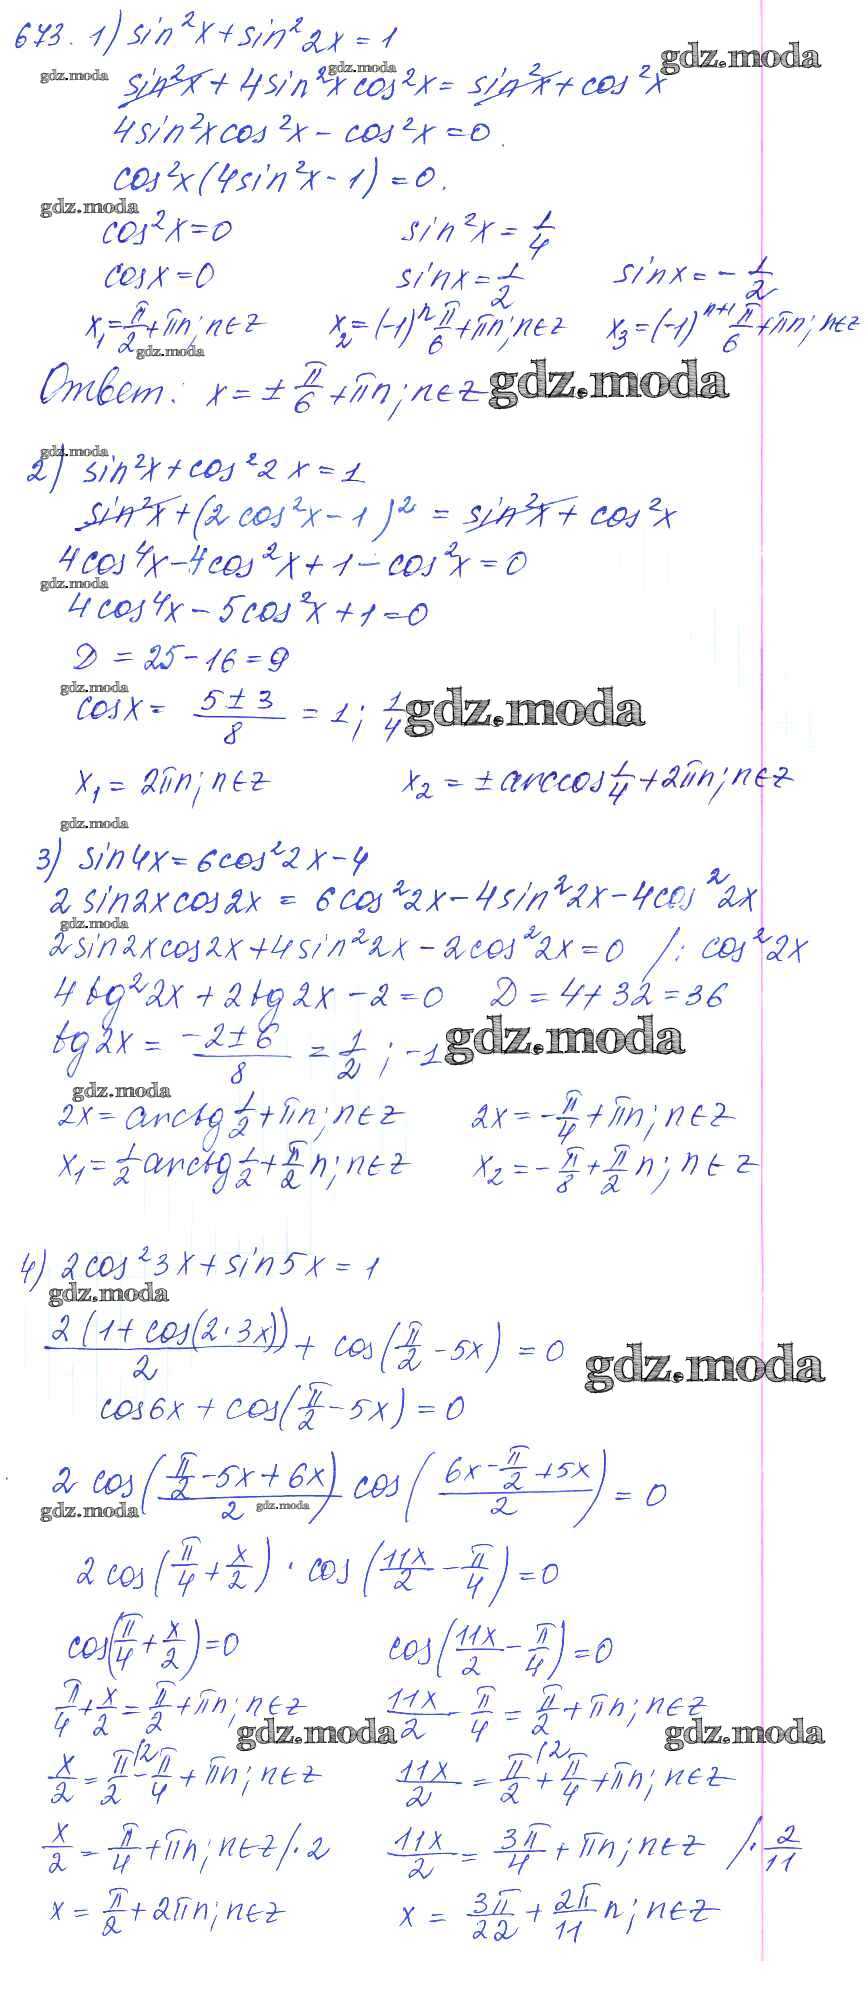 673. 1) sin²x + sin²2x = 1
gdz.moda
gdz.moda
gdz.moda
sin²x + 4sin²x cos²x = sin²x + cos²x
4sin²x cos²x - cos²x = 0.
cos²x (4sin²x - 1) = 0.
gdz.moda
cos²x = 0 sin²x = 1/4
cosx = 0 sinx = 1/2 sinx = - 1/2
x₁ = π/2 + πn; n∈Z x₂ = (-1)ⁿ π/6 + πn; n∈Z x₃ = (-1)ⁿ⁺¹ π/6 + πn; n∈Z
gdz.moda
Ответ: x = ± π/6 + πn; n∈Z
gdz.moda
gdz.moda
2) sin²x + cos²2x = 1
sin²x + (2cos²x - 1)² = sin²x + cos²x
4cos⁴x - 4cos²x + 1 - cos²x = 0
gdz.moda
4cos⁴x - 5cos²x + 1 = 0
D = 25 - 16 = 9
gdz.moda
cosx = (5 ± 3)/8 = 1; 1/4
gdz.moda
x₁ = 2πn; n∈Z x₂ = ± arccos 1/4 + 2πn; n∈Z
gdz.moda
3) sin4x = 6cos²2x - 4
2 sin2x cos2x = 6cos²2x - 4sin²2x - 4cos²2x
gdz.moda
2sin2x cos2x + 4sin²2x - 2cos²2x = 0 /: cos²2x
4tg²2x + 2tg2x - 2 = 0 D = 4 + 32 = 36
tg2x = (-2 ± 6)/8 = 1/2; -1
gdz.moda
gdz.moda
2x = arctg 1/2 + πn; n∈Z 2x = - π/4 + πn; n∈Z
x₁ = 1/2 arctg 1/2 + π/2 n; n∈Z x₂ = - π/8 + π/2 n; n∈Z
4) 2cos²3x + sin5x = 1
gdz.moda
2(1 + cos(2·3x))/2 + cos(π/2 - 5x) = 0
gdz.moda
cos6x + cos(π/2 - 5x) = 0
2 cos((π/2 - 5x + 6x)/2) cos((6x - π/2 + 5x)/2) = 0
gdz.moda
gdz.moda
2 cos(π/4 + x/2) · cos(11x/2 - π/4) = 0
cos(π/4 + x/2) = 0 cos(11x/2 - π/4) = 0
π/4 + x/2 = π/2 + πn; n∈Z 11x/2 - π/4 = π/2 + πn; n∈Z
gdz.moda
gdz.moda
x/2 = π/2 (2 - π/4 + πn; n∈Z 11x/2 = π/2 (2 + π/4 + πn; n∈Z
x/2 = π/4 + πn; n∈Z /·2 11x/2 = 3π/4 + πn; n∈Z /· 2/11
x = π/2 + 2πn; n∈Z x = 3π/22 + 2π/11 n; n∈Z